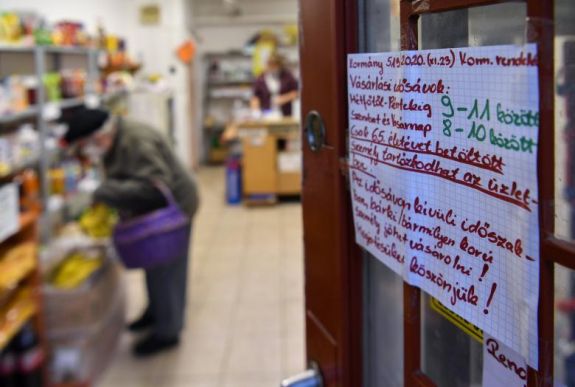 Kormány 519/2020. (XI.25) Korm. rendelet
Vásárlási idősávok:
Hétfőtől-Péntekig 9-11 között
Szombat és vasárnap 8-10 között
Csak 65. életévét betöltött
személy tartózkodhat az üzlet-
ben.
Az idősávon kívüli időszak-
ban, bárki/bármilyen korú
személy jöhet vásárolni!
Megértésüket köszönjük!
Rend